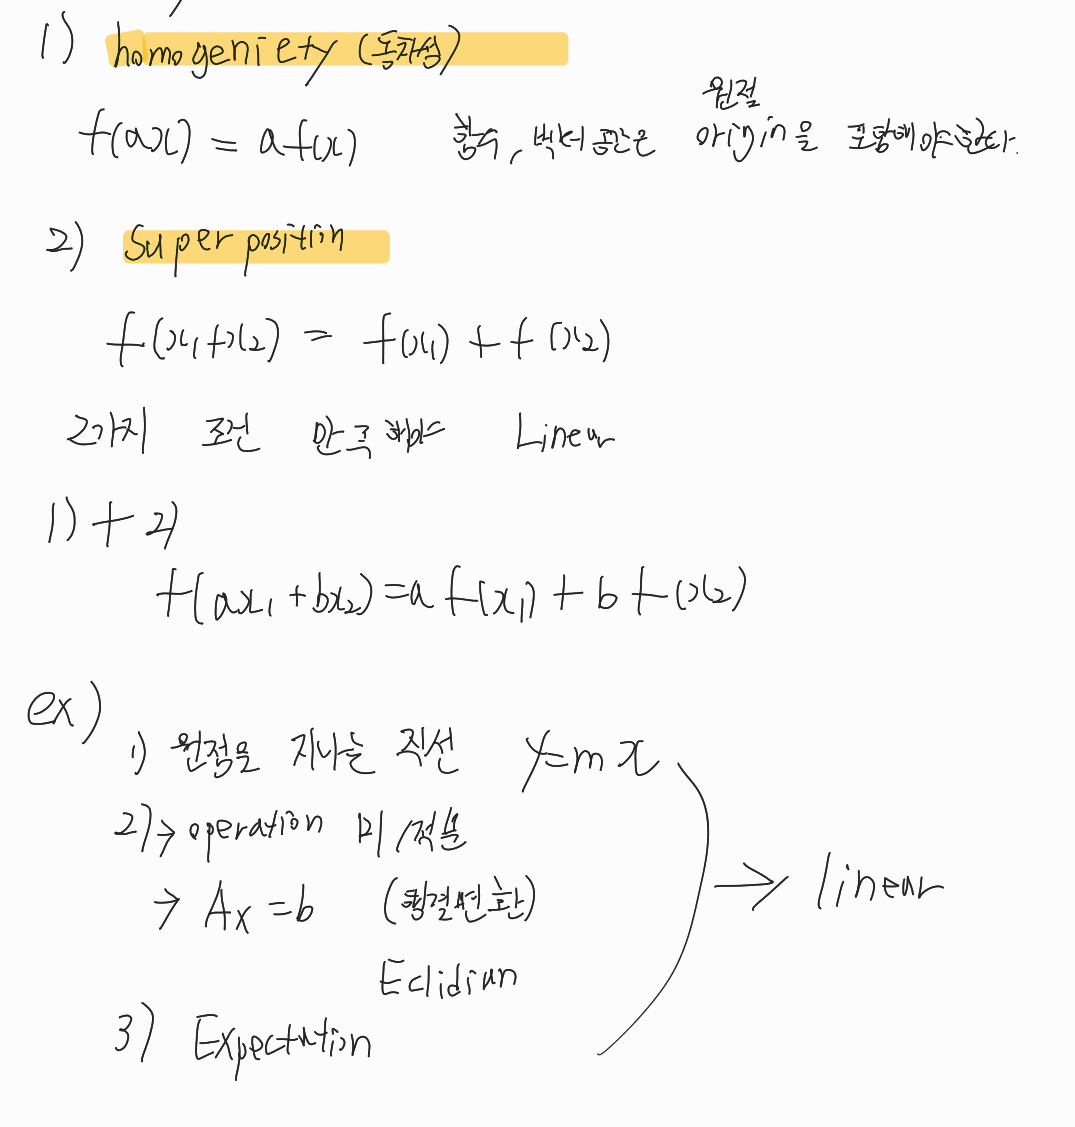 1) homogeniety (동차성)
원점
f(ax) = af(x) 함수, 벡터 공간은 origin을 포함해야한다.
2) Super position
f(x₁+x₂) = f(x₁) + f(x₂)
2가지 조건 만족해야 Linear
1) + 2)
f(ax₁ + bx₂) = a f(x₁) + b f(x₂)
ex)
1) 원점을 지나는 직선 y=mx
2) → operation 미/적분
→ Ax = b (행렬변환) → linear
Eclidian
3) Expectation